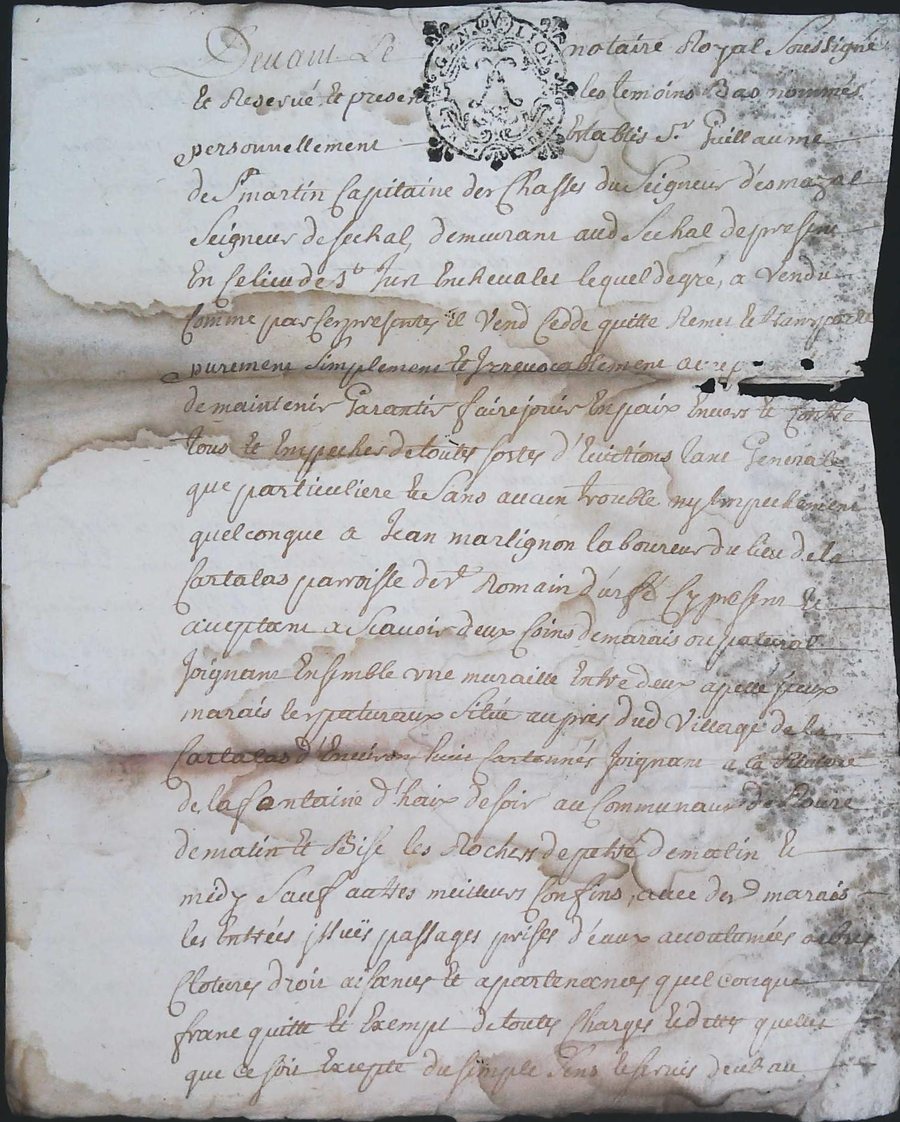 Devant Le notaire Royal Soussigné
et Reservé et present les temoins Bas nommés
personnellement Etablis Sr Guillaume
de St martin Capitaine des Chasses du Seigneur
Seigneur de sechal, demeurant aud Sechal de present
En Ce lieu de St Just Enchevalet lequel de gré, a Vendu
Comme par Ces presentes il Vend Cedde quitte Remet et
purement Simplement et Irrevocablement avec
de maintenir Garantir faire jouir En paix Envers et Contre
tous et Empecher de toutes sortes d'Evictions tant General
que particuliere et Sans aucun trouble ny Empechement
quelconque a Jean martignon laboureur du lieu de la
Cartalas parroisse de St Romain d'urfé Cy present et
acceptant a Scavoir deux Coins de marais ou
Joignant Ensemble une muraille Entre deux apellé
marais les paturaux Situé aupres dud Village de la
Cartalas d'Environ huit Cartonnés Joignant a la
de la fontaine d'haix de soir au Communaux de
de matin et Bise les Rochers de de matin et
midy Sauf autres meilleurs Confins, avec desd marais
les Entrées issües passages prises d'eaux accoutumées
Clotures droit aisances et apartenances quelconque
franc quitte et Exempt de toutes Charges et dittes quelles
que ce soit Excepté du simple Cens et servis